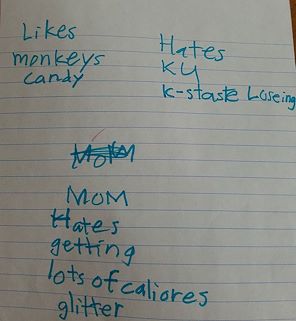 Likes
monkeys
candy
Hates
KU
K-state Loseing
MOM
MOM
Hates
getting
lots of caliores
glitter